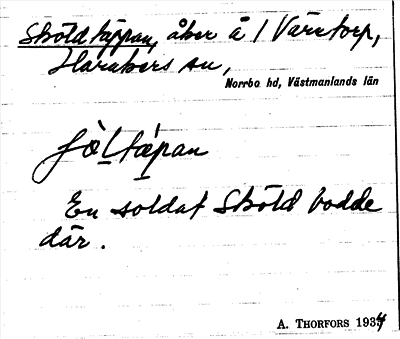 Sköldtäppan, åker å 1 Väretorp,
Harakers sn,
Norrbo hd, Västmanlands län
fö̀ltæpan
En soldat Sköld bodde
där.
A. THORFORS 1934